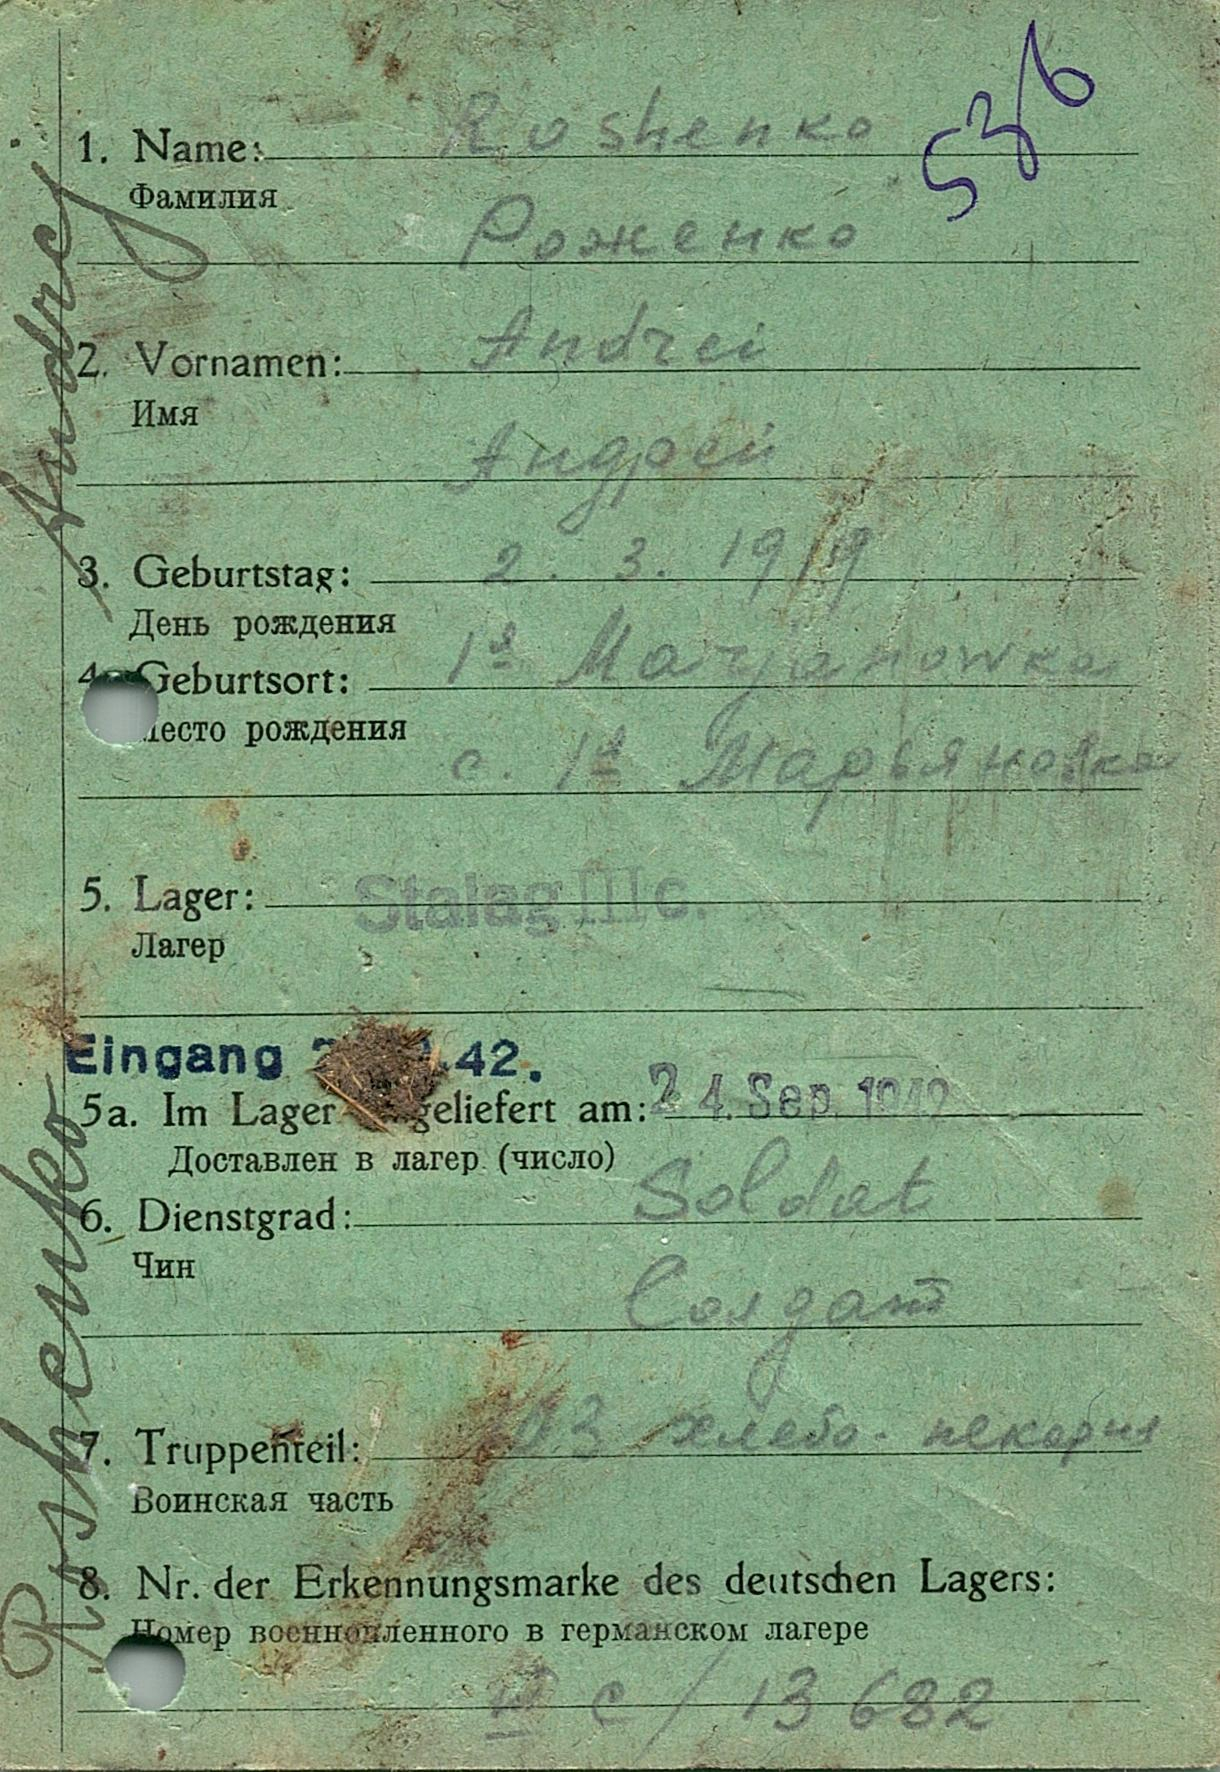 536
1. Name: Roshenko
Фамилия
Роженко
2. Vornamen: Andrei
Имя
Андрей
3. Geburtstag: 2. 3. 1919
День рождения
4. Geburtsort: 1я Marjanowka
Место рождения
с. 1я Марьяновка
5. Lager: Stalag III c.
Лагер
Eingang .42.
5a. Im Lager geliefert am: 24. Sep. 1942
Доставлен в лагер (число)
6. Dienstgrad: Soldat
Чин
Солдат
7. Truppenteil: хлебо-пекария
Воинская часть
8. Nr. der Erkennungsmarke des deutschen Lagers:
Номер военнопленного в германском лагере
III C / 13682
Roshenko Andrej